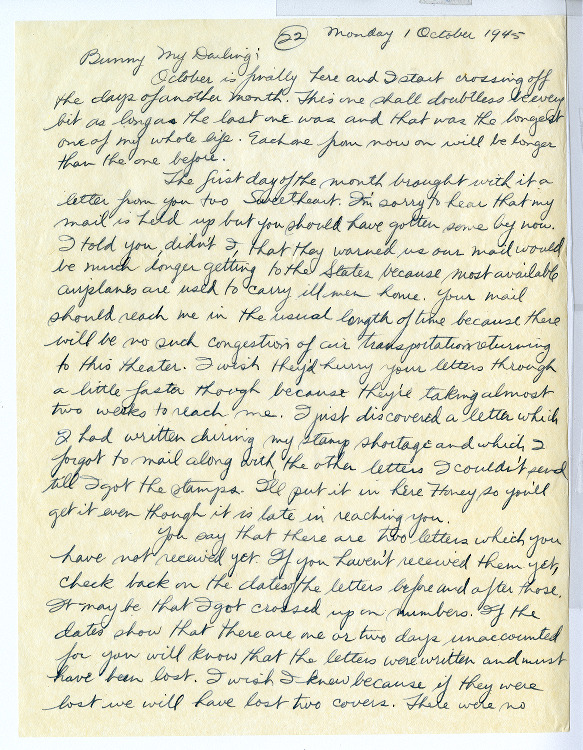 22 Monday 1 October 1945
Bunny My Darling;
October is finally here and I start crossing off
the days of another month. This one shall doubtless be every
bit as long as the last one was and that was the longest
one of my whole life. Each one from now on will be longer
than the one before.
The first day of the month brought with it a
letter from you two Sweetheart. I'm sorry to hear that my
mail is held up but you should have gotten some by now.
I told you didn't I that they warned us our mail would
be much longer getting to the States because most available
airplanes are used to carry ill men home. Your mail
should reach me in the usual length of time because there
will be no such congestion of air transportation returning
to this theater. I wish they'd hurry your letters through
a little faster though because they're taking almost
two weeks to reach me. I just discovered a letter which
I had written during my stamp shortage and which I
forgot to mail along with the other letters I couldn't send
till I got the stamps. I'll put it in here Honey so you'll
get it even though it is late in reaching you.
You say that there are two letters which you
have not received yet. If you haven't received them yet,
check back on the dates of the letters before and after those.
It may be that I got crossed up on numbers. If the
dates show that there are one or two days unaccounted
for you will know that the letters were written and must
have been lost. I wish I knew because if they were
lost we will have lost two covers. There were no